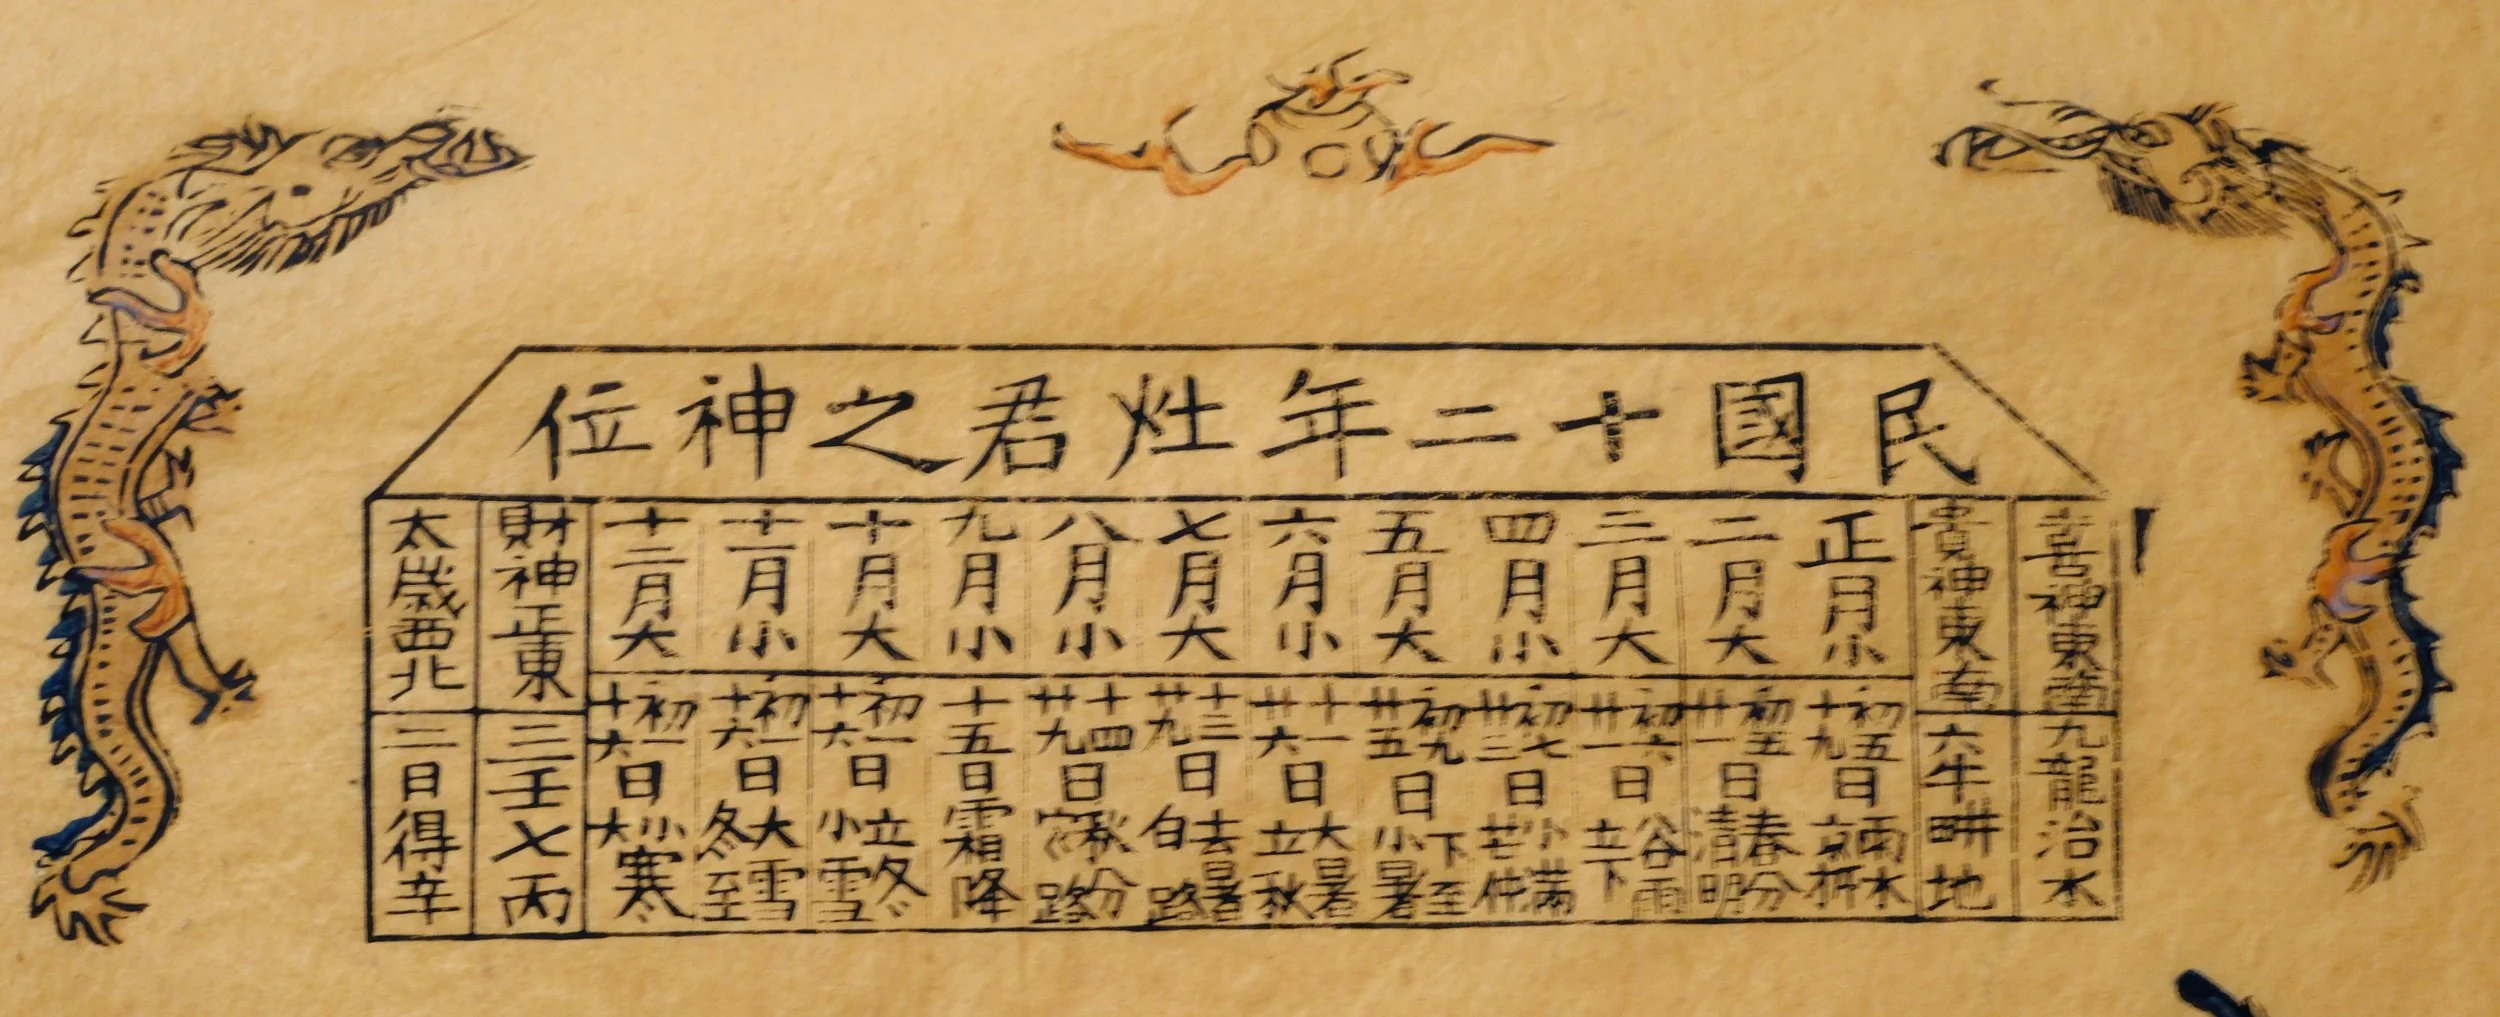 民國十二年灶君之神位
喜神東南
九龍治水
貴神東南
六牛畊地
正月小
初五十九日雨水京折
二月大
初五廿一日春分清明
三月大
初六廿一日谷雨立下
四月小
初七廿三日小滿芒仲
五月大
初九廿五日下至小暑
六月小
十一廿六日大暑立秋
七月大
十三廿九日去暑白路
八月小
十四廿九日秋分路
九月小
十五日霜降
十月大
初一十六日立冬小雪
十一月小
初一十六日大雪冬至
十二月大
初一十六日小大寒
財神正東
三壬七丙
太歲西北
二日得辛